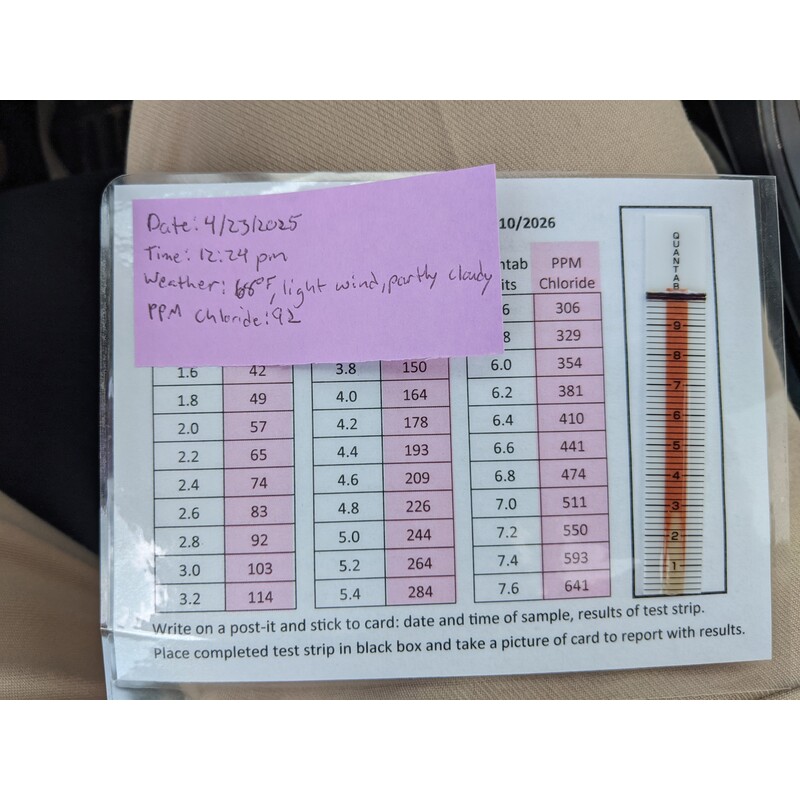 Date: 4/23/2025
Time: 12:24 pm
Weather: 66°F, light wind, partly cloudy
PPM Chloride: 92
10/2026
ntab
its
PPM
Chloride
6 306
8 329
1.6 42 3.8 150 6.0 354
1.8 49 4.0 164 6.2 381
2.0 57 4.2 178 6.4 410
2.2 65 4.4 193 6.6 441
2.4 74 4.6 209 6.8 474
2.6 83 4.8 226 7.0 511
2.8 92 5.0 244 7.2 550
3.0 103 5.2 264 7.4 593
3.2 114 5.4 284 7.6 641
QUANTAB
9
8
7
6
5
4
3
2
1
Write on a post-it and stick to card: date and time of sample, results of test strip.
Place completed test strip in black box and take a picture of card to report with results.